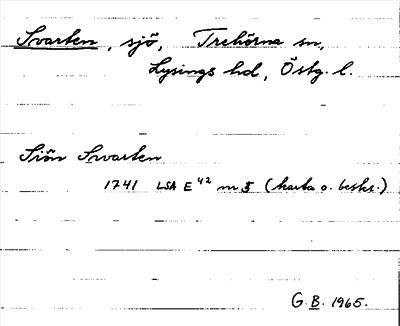 Svarten, sjö, Trehörna sn,
Lysings hd, Östg. l.
Siön Swarten
1741 LSA E 42 m 5 (karta o. beskr.)
G. B. 1965.